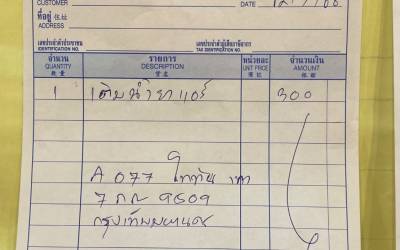 CUSTOMER
DATE
ที่อยู่
ADDRESS
เลขประจำตัวประชาชน เลขประจำตัวผู้เสียภาษีอากร
IDENTIFICATION NO. TAX IDENTIFICATION NO.
จำนวน รายการ หน่วยละ จำนวนเงิน
QUANTITY DESCRIPTION UNIT PRICE AMOUNT
1 เติมน้ำยาแอร์ 300
A 077 ไททัน เทา
7 กก 9609
กรุงเทพมหานคร